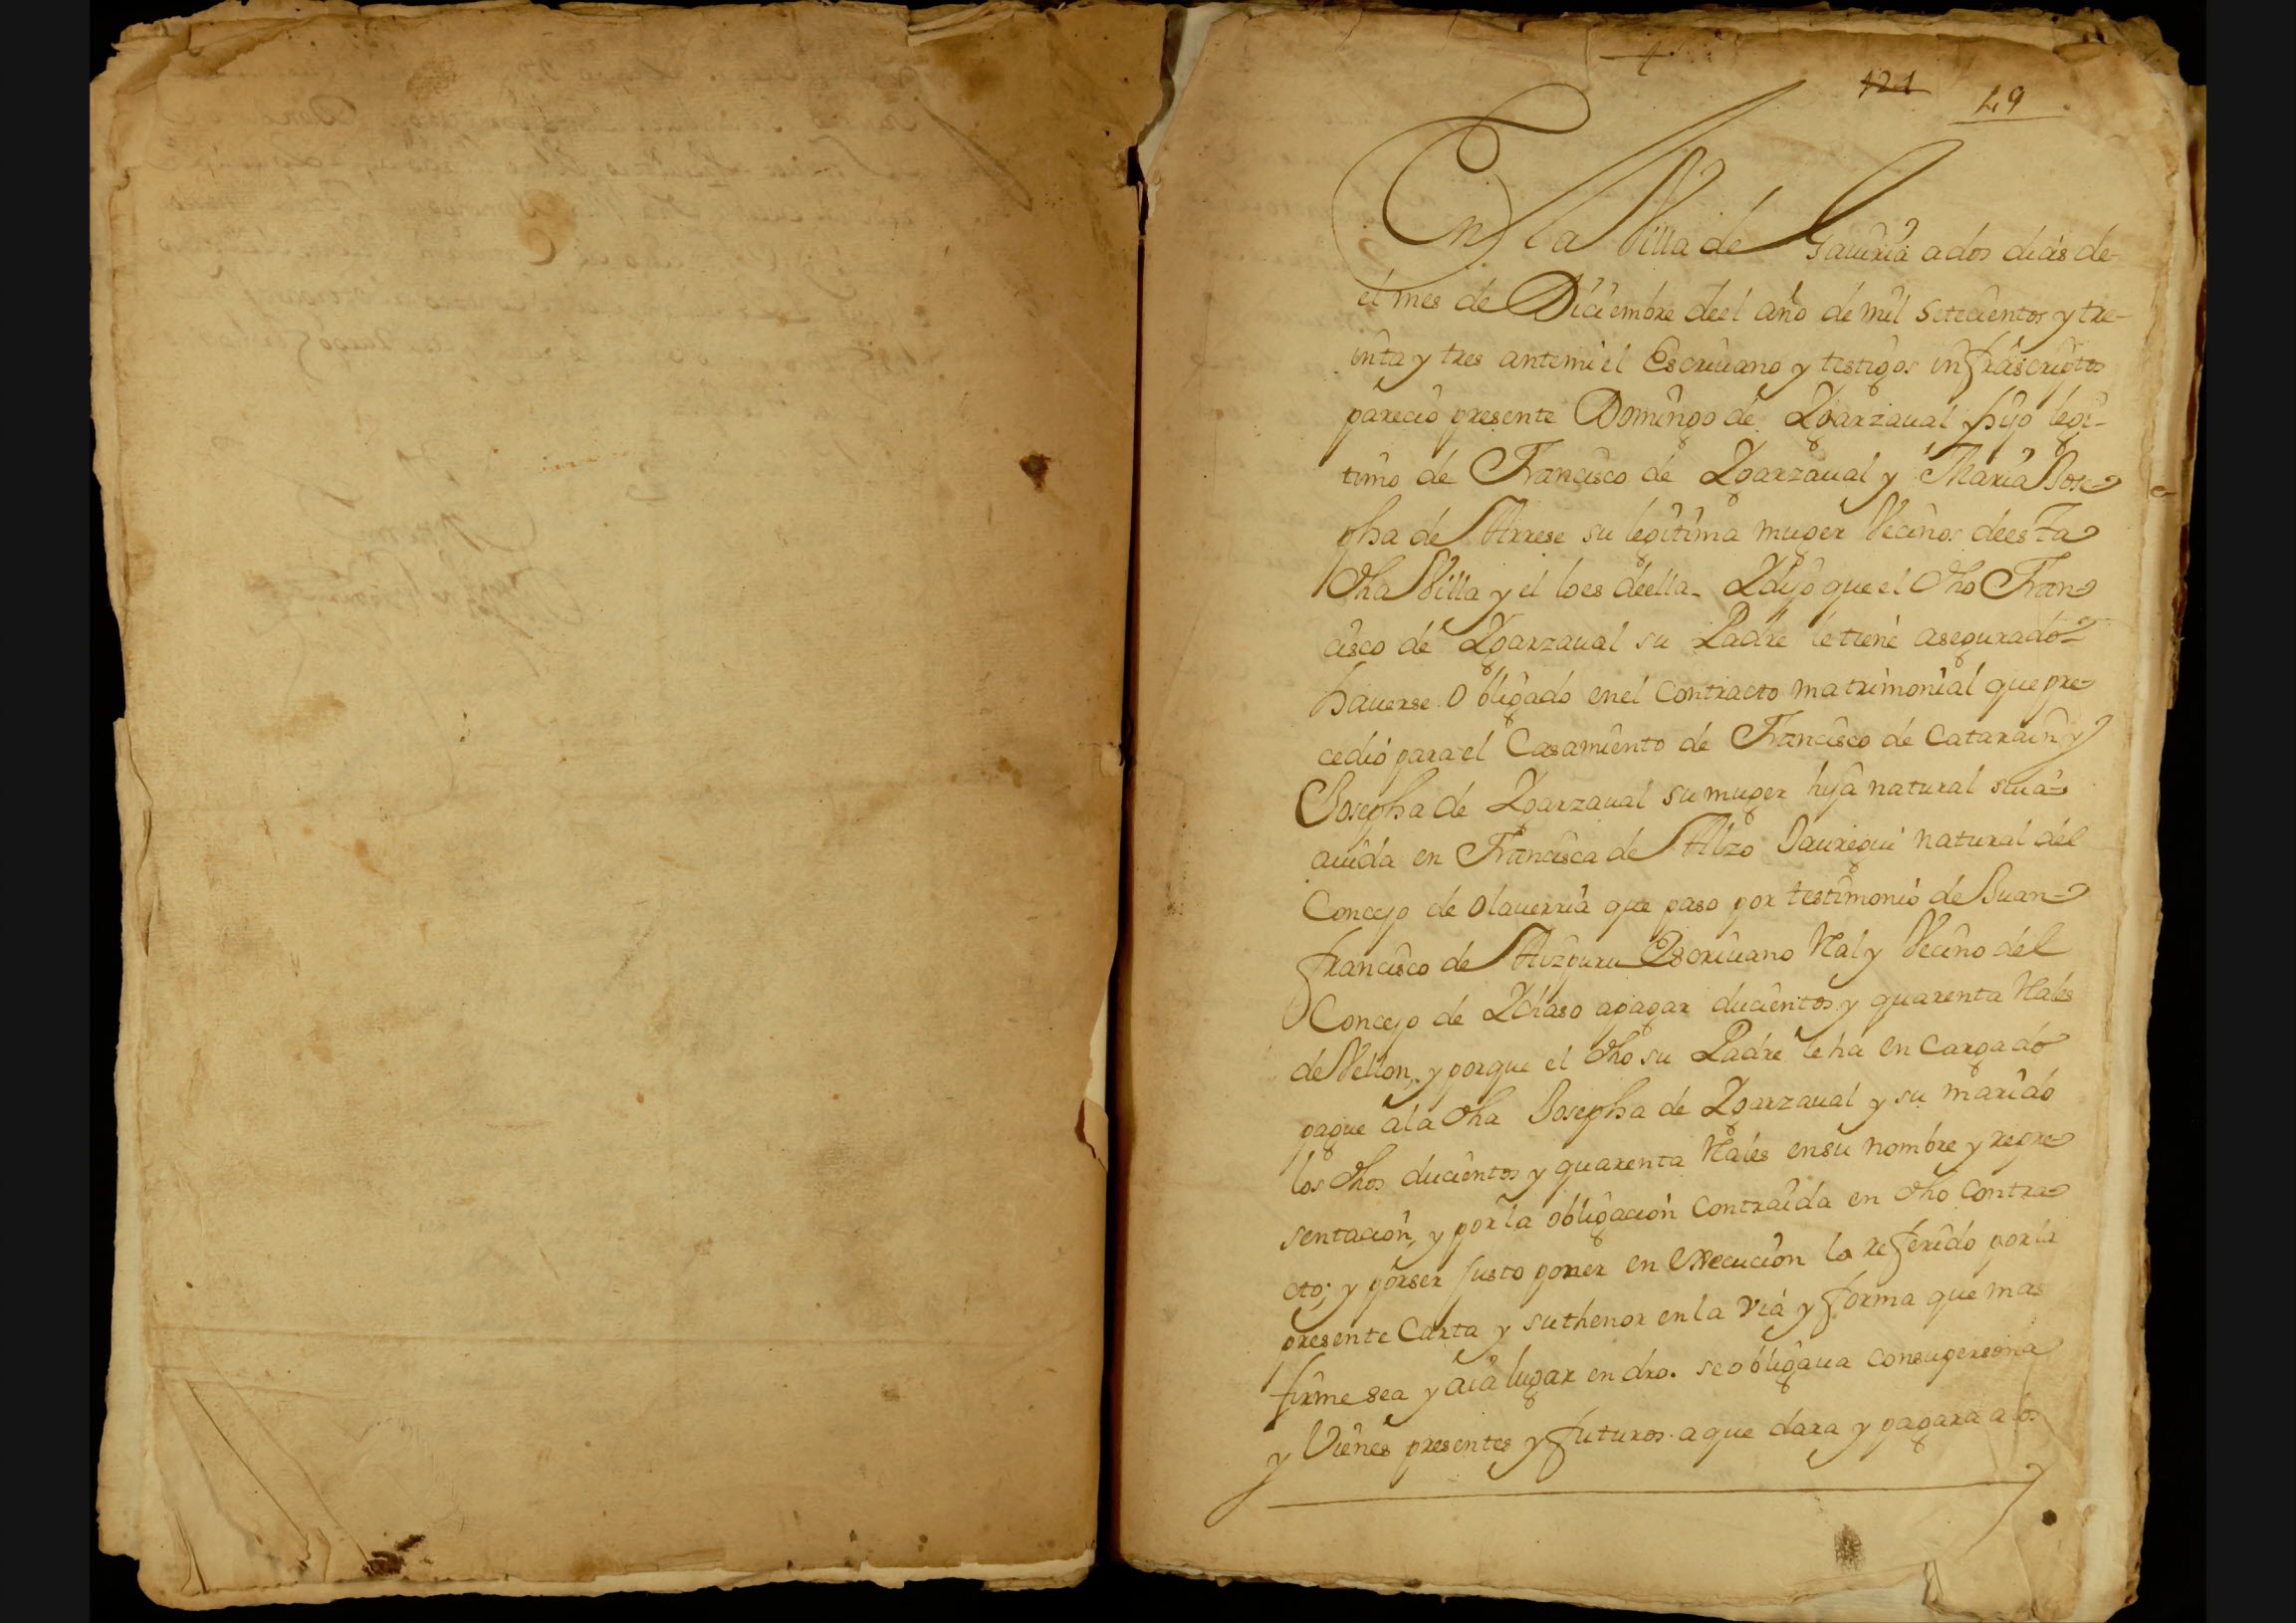 121 49
En la Villa de Gauiria a dos dias de
el mes de Diciembre deel año de mil setecientos y tre-
inta y tres antemi el Escriuano y testigos infrascriptos
parecio presente Domingo de Ygarzaual hijo legi-
timo de Francisco de Ygarzaual y Maria Jose
pha de Arrese su legitima muger Vecinos deesta
dha Villa y el loes deella. Y dijo que el dho Fran
cisco de Ygarzaual su Padre le tiene asegurado
hauerse obligado enel contracto matrimonial que pre
cedio para el Casamiento de Francisco de Catarain y
Josepha de Ygarzaual su muger hija natural suia
auida en Francisca de Alzo Jauregui natural del
Concejo de olauerria que paso por testimonio de Juan
francisco de Aizpuru Escriuano Ral y Vecino del
Concejo de Ychaso apagar ducientos y quarenta Rales
de Vellon, y porque el dho su Padre le ha encargado
pague ala dha Josepha de Ygarzaual y su marido
los dhos ducientos y quarenta Rales en su nombre y repre
sentacion, y por la obligacion Contraida en dho Contra
cto; y por ser justo poner en execucion lo referido por la
presente Carta y su thenor en la via y forma que mas
firme sea y aia lugar en dro. se obligaua con su persona
y Vienes presentes y futuros a que dara y pagara a los